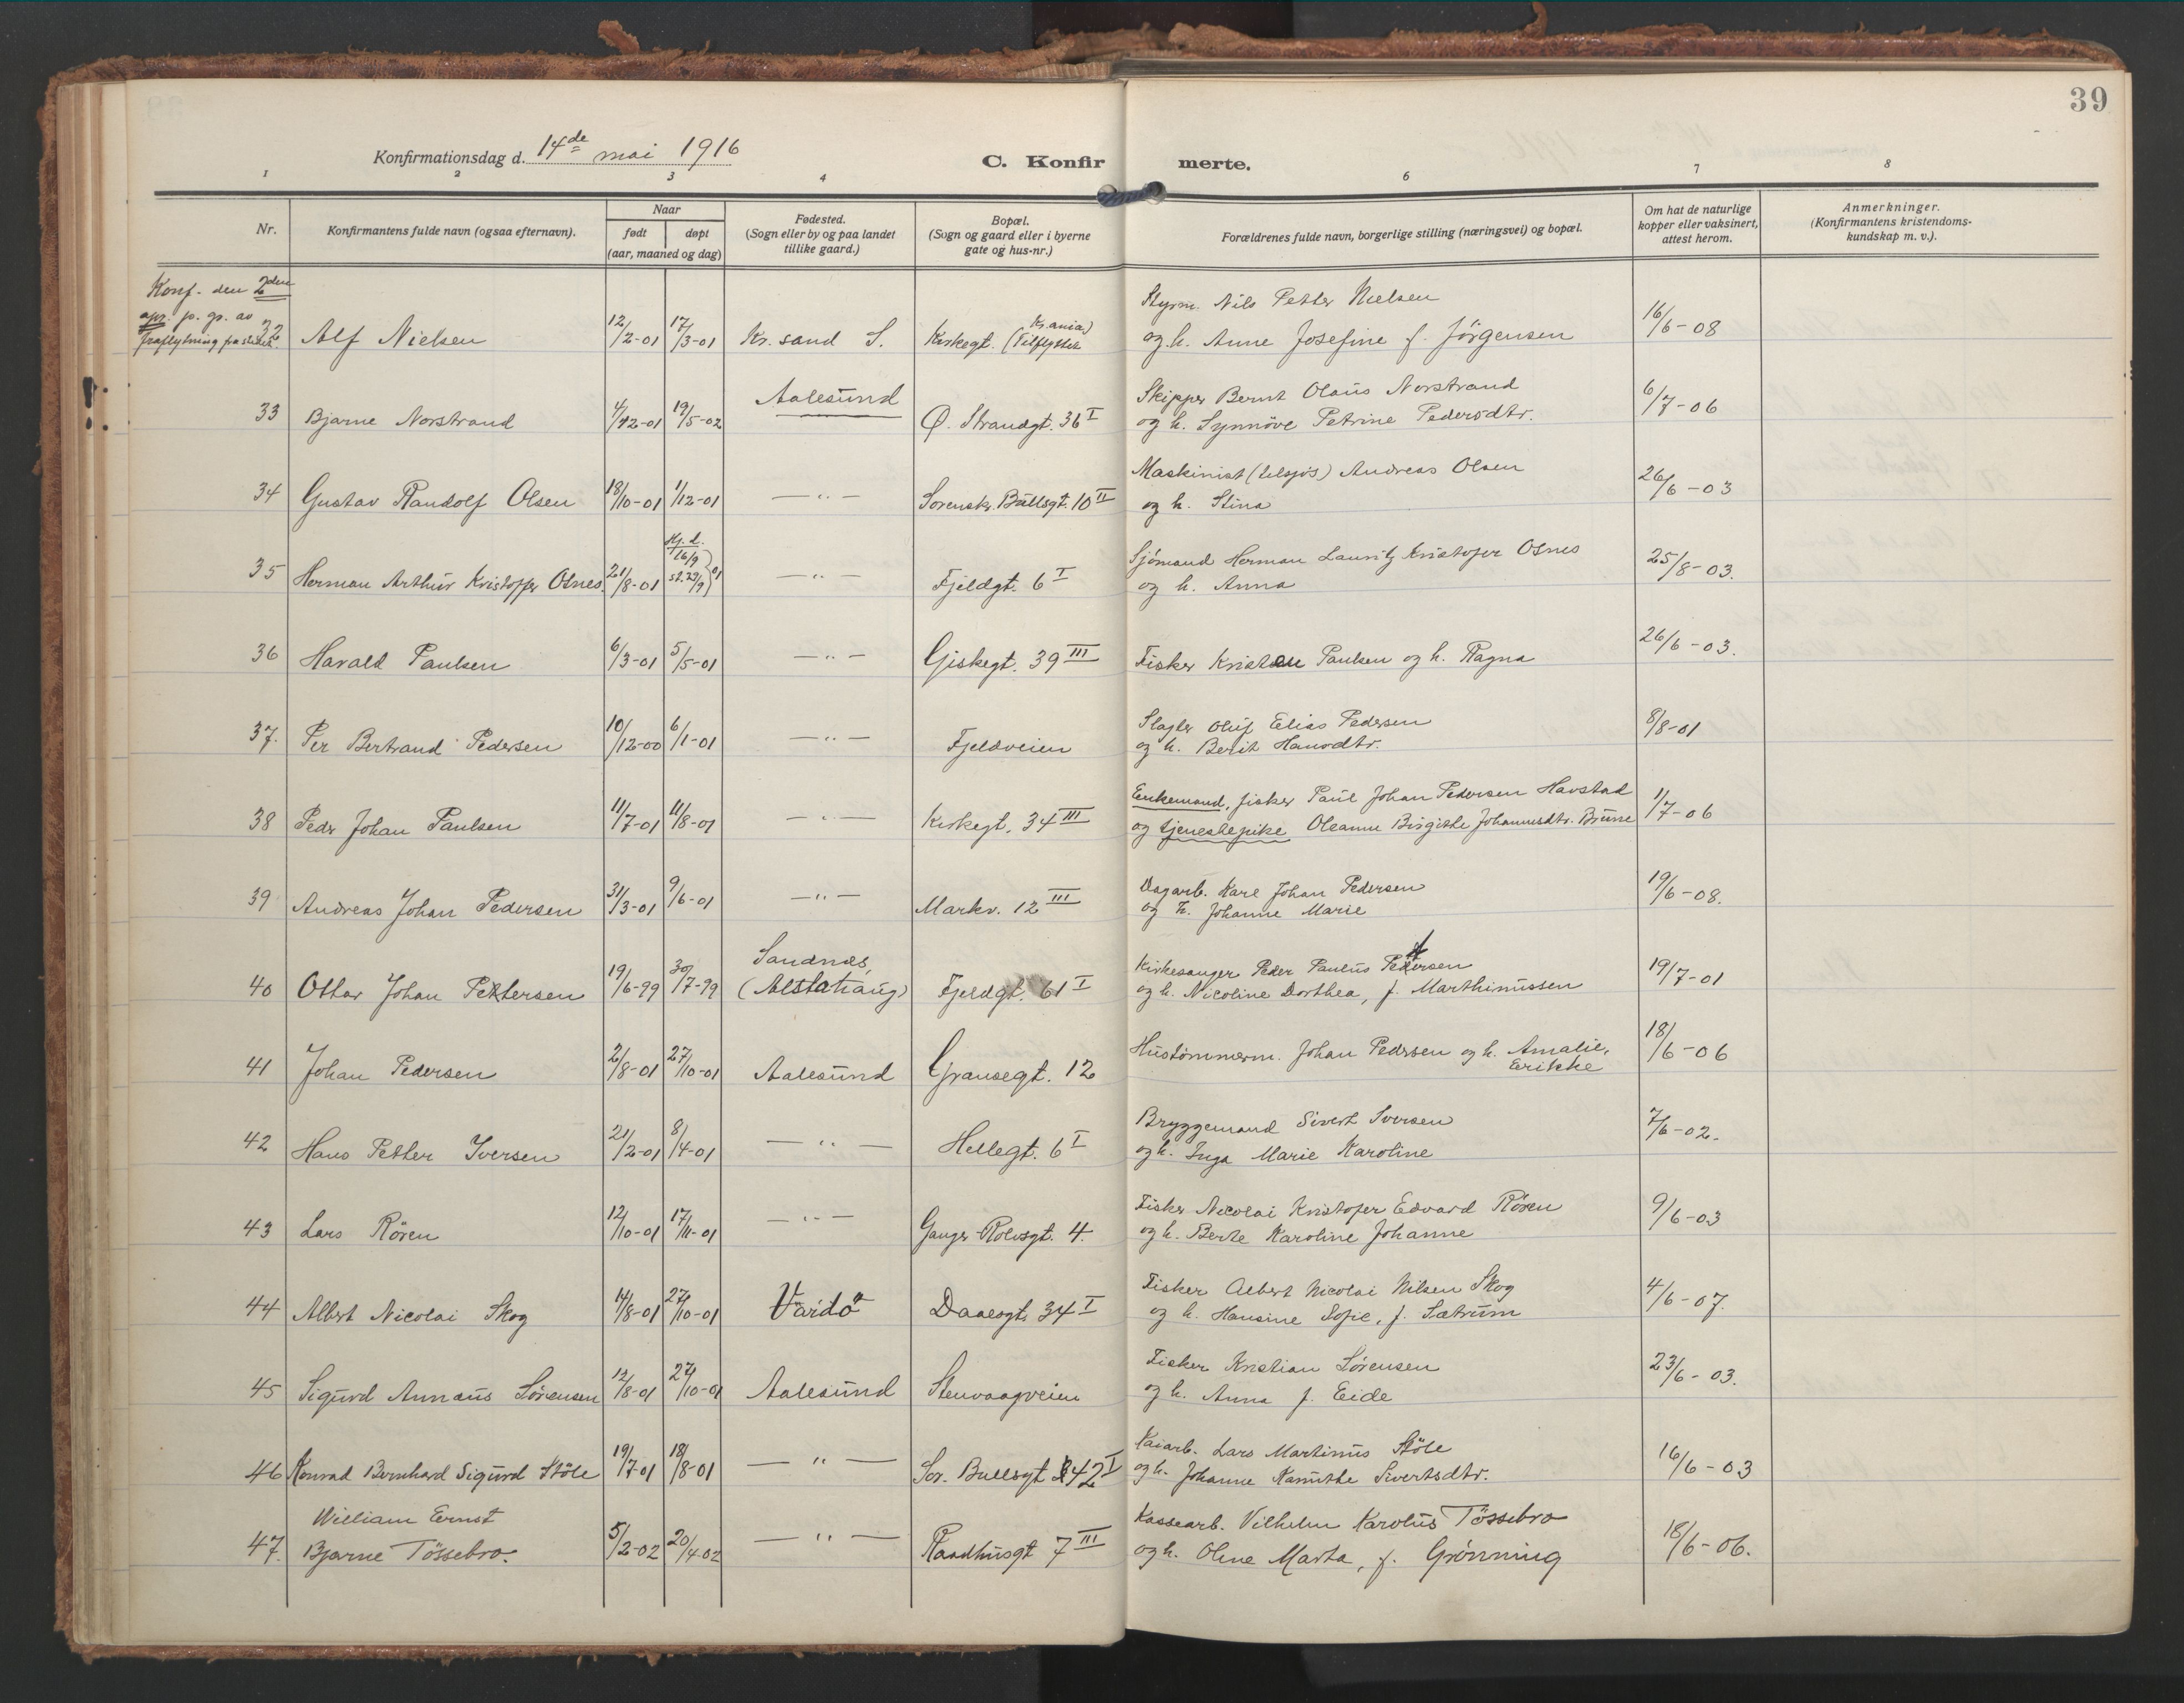 39
Konfirmationsdag d. 14de mai 1916
C. Konfirmerte.
1 2 3 4 6 7 8
Nr.
Konfirmantens fulde navn (ogsaa efternavn).
Naar
født døpt
(aar, maaned og dag)
Fødested.
(Sogn eller by og paa landet
tillike gaard.)
Bopæl.
(Sogn og gaard eller i byerne
gate og hus-nr.)
Forældrenes fulde navn, borgerlige stilling (næringsvei) og bopæl.
Om hat de naturlige
kopper eller vaksinert,
attest herom.
Anmerkninger.
(Konfirmantens kristendoms-
kundskap m. v.).
Konf. den 2den
apr. p. gr. av
fraflytning
32 Alf Nielsen 12/2-01 17/3-01 Kr. sand S. Kirkegt. (Tilflyttet Kr.ania)
Styrm. Nils Petter Nielsen
og h. Anne Josefine f. Jörgensen 16/6-08
33 Bjarne Norstrand 4/12-01 19/5-02 Aalesund Ø. Strandgt. 36 I
Skipper Bernt Olaus Norstrand
og h. Synnöve Petrine Pedersdtr. 6/7-06
34 Gustav Randolf Olsen 18/10-01 1/12-01 — " — Sorensk. Bullsgt. 10 II
Maskinist (tilsjøs) Andreas Olsen
og h. Stina 26/6-03
35 Herman Arthur Kristoffer Olnes 21/8-01 Hj. d. 16/9 st. 29/9 } 01 — " — Fjeldgt. 6 I
Sjømand Herman Lauritz Kristofer Olnes
og h. Anna 25/8-03.
36 Harald Paulsen 6/3-01 5/5-01 — " — Giskegt. 39 III
Fisker Kristen Paulsen og h. Ragna 26/6-03.
37. Per Bertrand Pedersen 10/12-00 6/1-01 — " — Fjeldveien
Slagter Oluf Elias Pedersen
og h. Berit Hansdtr. 8/8-01
38 Peder Johan Paulsen 11/7-01 11/8-01 — " — Kirkegt. 34 III
Enkemand, fisker Paul Johan Pedersen Havstad
og tjenestepike Oleanne Birgitte Johannesdtr. Brune 1/7-06
39 Andreas Johan Pedersen 31/3-01 9/6-01 — " — Markv. 12 III
Dagarb. Karl Johan Pedersen
og h. Johanne Marie 19/6-08.
40 Ottar Johan Pettersen 19/6-99 30/7-99 Sandnæs, (Alstahaug) Fjeldgt. 61 I
Kirkesanger Peder Paulus Pettersen
og h. Nicoline Dorthea, f. Marthinussen 19/7-01
41 Johan Pedersen 2/8-01 27/10-01 Aalesund Gransegt. 12
Hustømmerm. Johan Pedersen og h. Amalie,
Erikke 18/6-06
42 Hans Petter Iversen 21/2-01 8/4-01 — " — Hellegt. 6 I
Bryggemand Sivert Iversen
og h. Inga Marie Karoline 7/6-02.
43 Lars Rören 12/10-01 17/11-01 — " — Ganger Rolvsgt. 4.
Fisker Nicolai Kristofer Edvard Rören
og h. Berte Karoline Johanne 9/6-03
44 Albert Nicolai Skog 14/8-01 27/10-01 Vardö Daaesgt. 34 I
Fisker Albert Nicolai Nilsen Skog
og h. Hansine Sofie, f. Sætrum 4/6-07.
45 Sigurd Annaus Sörensen 12/8-01 27/10-01 Aalesund Stenvaagveien
Fisker Kristian Sörensen
og h. Anna f. Eide 23/6-03.
46 Konrad Bernhard Sigurd Støle 19/7-01 18/8-01 — " — Sor. Bullsgt 42 I
Kaiarb. Lars Martinus Støle
og h. Johanne Kanutte Sivertsdtr. 16/6-03
William Ernst
47. Bjarne Tössebro. 5/2-02 20/4-02 — " — Raadhusgt 7 III
Kassearb. Vilhelm Karolus Tössebro
og h. Oline Marta, f. Grönning 18/6-06.